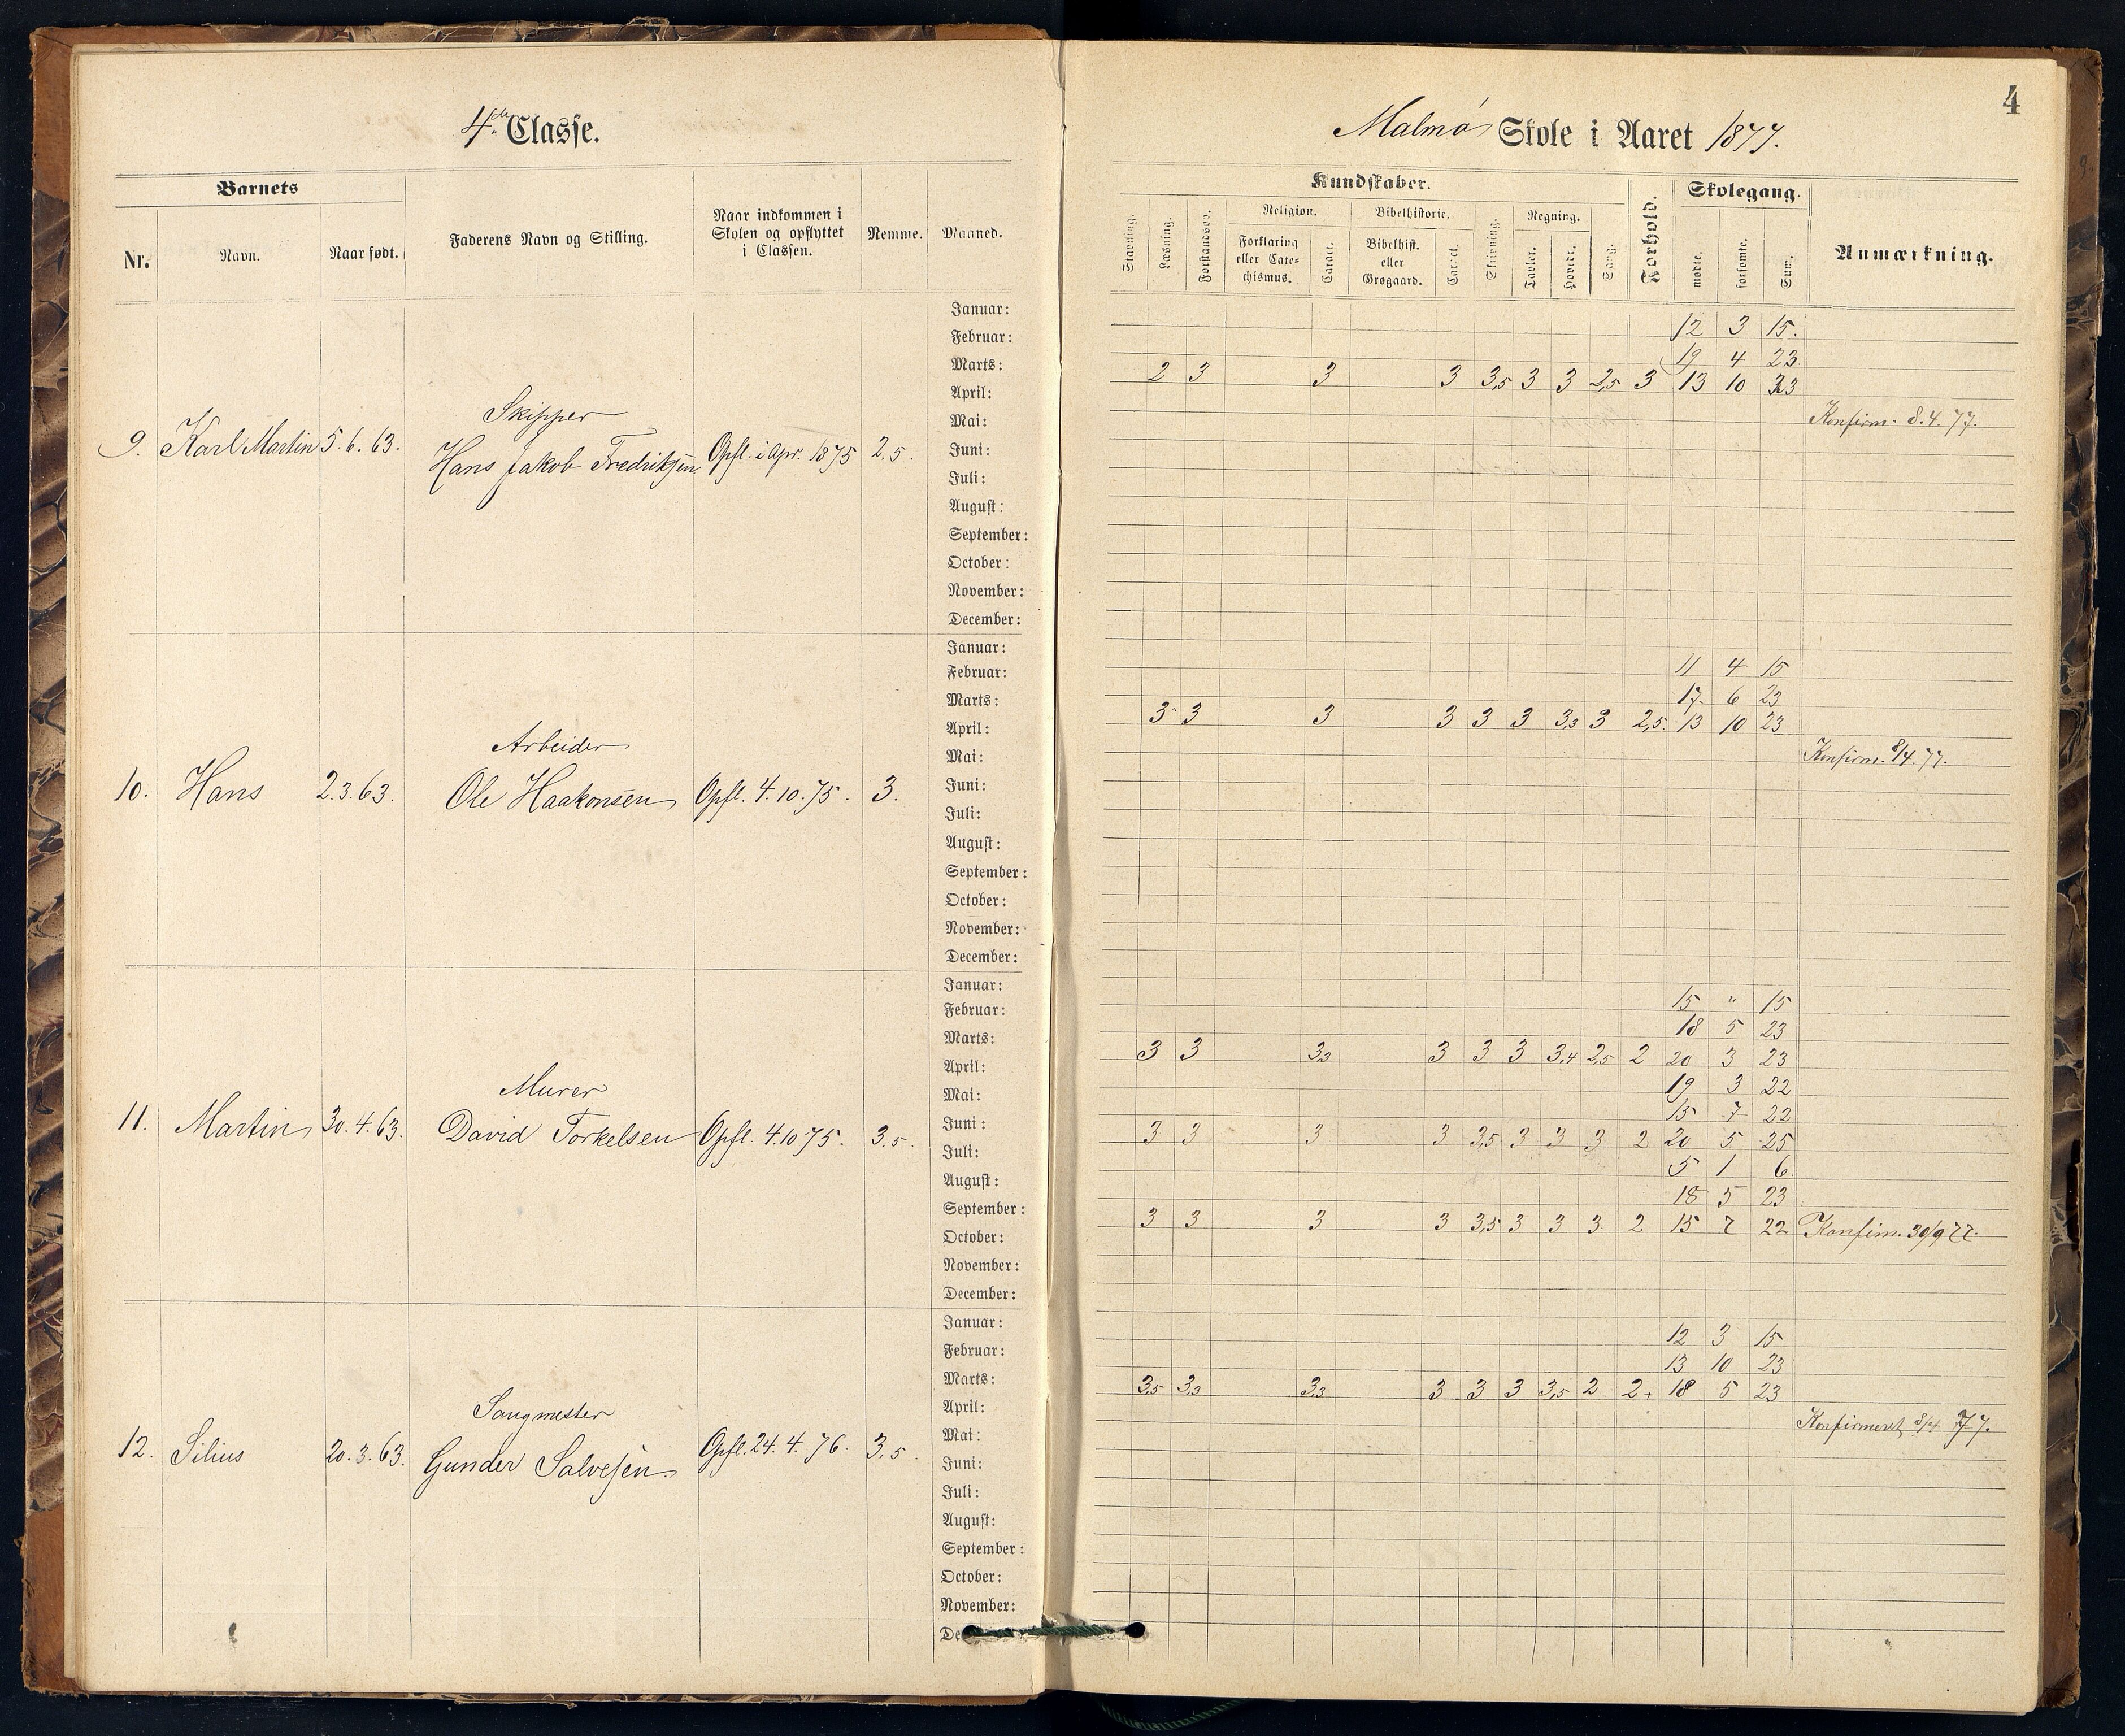 4
4de Classe.
Malmø Skole i Aaret 1877.
Barnets
Nr.
Navn.
Naar født.
Faderens Navn og Stilling.
Naar indkommen i
Skolen og opflyttet
i Classen.
Nemme.
Maaned.
Kundskaber.
Stavning.
Læsning.
Forstandsøv.
Religion.
Forklaring
eller Cate=
chismus.
Caract.
Bibelhistorie.
Bibelhist.
eller
Grøgaard.
Caract.
Skrivning.
Regning.
Tavler.
Hovedr.
Sang.
Forhold.
Skolegang.
mødte.
forsømte.
Sum.
Anmærkning.
9. Karl Martin 5.6.63.
Skipper
Hans Jakob Fredriksen
Opfl. i Apr. 1875 2.5.
Januar: 12 3 15.
Februar: 19 4 23
Marts: 2 3 3 3 3,5 3 3 2,5 3 13 10 23
April: Konfirm. 8.4.77.
Mai:
Juni:
Juli:
August:
September:
October:
November:
December:
10. Hans 2.3.63.
Arbeider
Ole Haakonsen
Opfl. 4.10.75. 3.
Januar: 11 4 15
Februar: 17 6 23
Marts: 3 3 3 3 3 3 3,3 3 2,5 13 10 23
April: Konfirm. 8/4.77.
Mai:
Juni:
Juli:
August:
September:
October:
November:
December:
11. Martin 30.4.63.
Murer
David Torkelsen
Opfl. 4.10.75. 3,5.
Januar: 15 " 15
Februar: 18 5 23
Marts: 3 3 3,3 3 3 3 3,4 2,5 2 20 3 23
April: 19 3 22
Mai: 15 7 22
Juni: 3 3 3 3 3,5 3 3 3 2 20 5 25
Juli: 5 1 6
August: 18 5 23
September: 3 3 3 3 3,5 3 3 3 2 15 7 22 Konfirm. 30/9 77.
October:
November:
December:
12. Silius 20.3.63.
Saugmester
Gunder Salvesen
Opfl. 24.4.76. 3,5.
Januar: 12 3 15
Februar: 13 10 23
Marts: 3,5 3,3 3,3 3 3 3 3,5 2 2 18 5 23
April: Konfirmeret 8/4 77.
Mai:
Juni:
Juli:
August:
September:
October:
November:
De